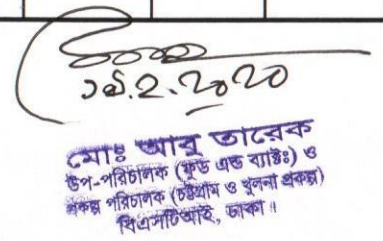 মোঃ আবু তারেক
উপ-পরিচালক (ফুড এন্ড ব্যাক্টঃ) ও
প্রকল্প পরিচালক (চট্টগ্রাম ও খুলনা প্রকল্প)
বিএসটিআই, ঢাকা।